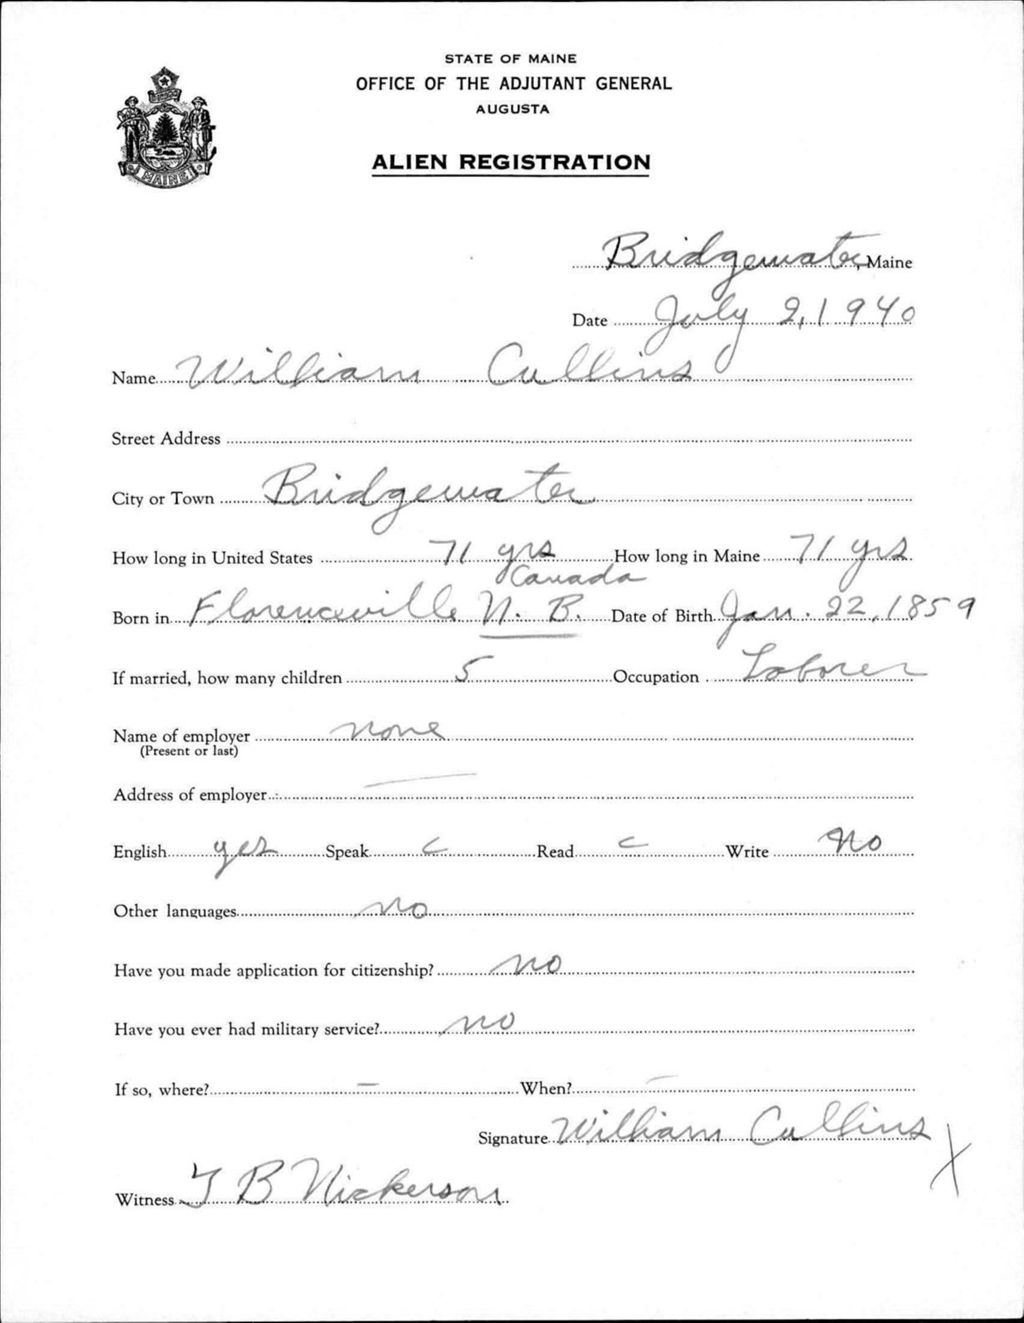 STATE OF MAINE
OFFICE OF THE ADJUTANT GENERAL
AUGUSTA
ALIEN REGISTRATION
MAINE
Bridgewater, Maine
Date July 2, 1940
Name William Cullins
Street Address
City or Town Bridgewater
How long in United States 71 yrs How long in Maine 71 yrs
Canada
Born in Florenceville N. B. Date of Birth Jan. 22, 1859
If married, how many children 5 Occupation Laborer
Name of employer none
(Present or last)
Address of employer —
English yes Speak Read Write No
Other languages no
Have you made application for citizenship? no
Have you ever had military service? no
If so, where? — When? —
Signature William Cullins X
Witness B Nickerson